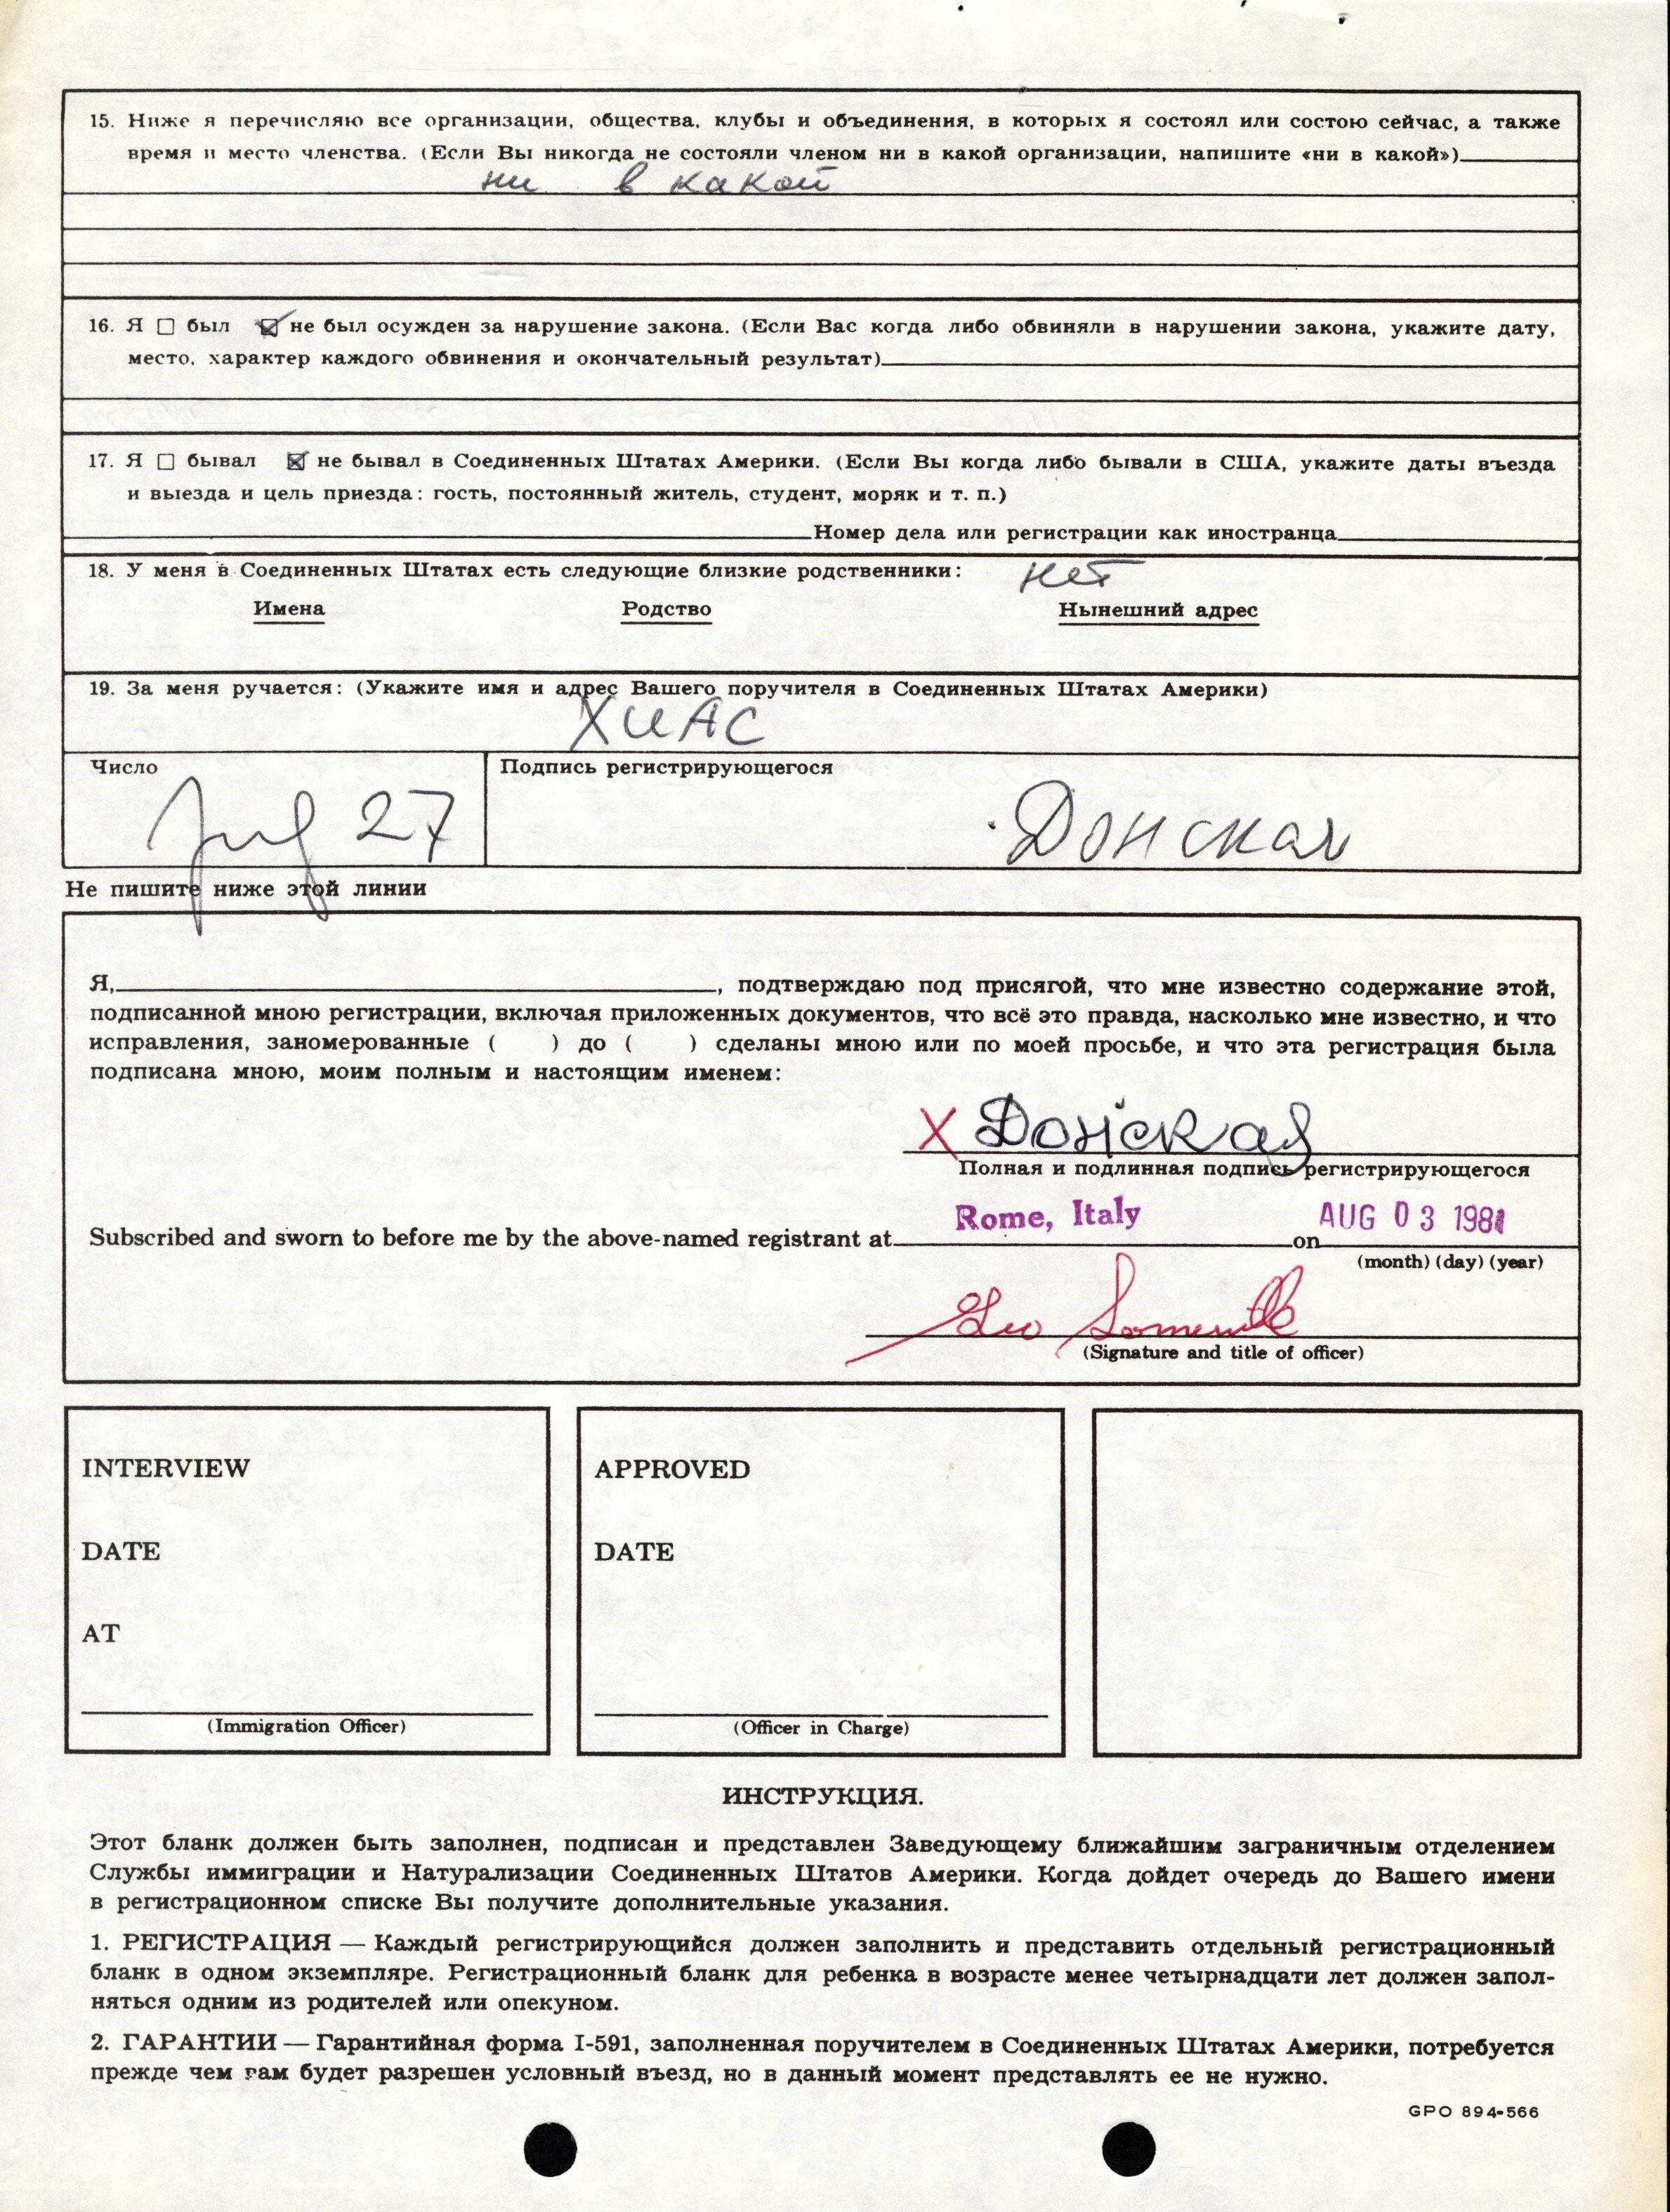 15. Ниже я перечисляю все организации, общества, клубы и объединения, в которых я состоял или состою сейчас, а также
время и место членства. (Если Вы никогда не состояли членом ни в какой организации, напишите «ни в какой»)
ни в какой
16. Я ☐ был ☑ не был осужден за нарушение закона. (Если Вас когда либо обвиняли в нарушении закона, укажите дату,
место, характер каждого обвинения и окончательный результат)
17. Я ☐ бывал ☒ не бывал в Соединенных Штатах Америки. (Если Вы когда либо бывали в США, укажите даты въезда
и выезда и цель приезда: гость, постоянный житель, студент, моряк и т. п.)
Номер дела или регистрации как иностранца
18. У меня в Соединенных Штатах есть следующие близкие родственники: нет
Имена Родство Нынешний адрес
19. За меня ручается: (Укажите имя и адрес Вашего поручителя в Соединенных Штатах Америки)
ХИАС
Число Подпись регистрирующегося
27 Донская
Не пишите ниже этой линии
Я, , подтверждаю под присягой, что мне известно содержание этой,
подписанной мною регистрации, включая приложенных документов, что всё это правда, насколько мне известно, и что
исправления, заномерованные ( ) до ( ) сделаны мною или по моей просьбе, и что эта регистрация была
подписана мною, моим полным и настоящим именем:
X Донская
Полная и подлинная подпись регистрирующегося
Subscribed and sworn to before me by the above-named registrant at Rome, Italy on AUG 03 1981
(month) (day) (year)
(Signature and title of officer)
INTERVIEW
DATE
AT
(Immigration Officer)
APPROVED
DATE
(Officer in Charge)
ИНСТРУКЦИЯ.
Этот бланк должен быть заполнен, подписан и представлен Заведующему ближайшим заграничным отделением
Службы иммиграции и Натурализации Соединенных Штатов Америки. Когда дойдет очередь до Вашего имени
в регистрационном списке Вы получите дополнительные указания.
1. РЕГИСТРАЦИЯ — Каждый регистрирующийся должен заполнить и представить отдельный регистрационный
бланк в одном экземпляре. Регистрационный бланк для ребенка в возрасте менее четырнадцати лет должен запол-
няться одним из родителей или опекуном.
2. ГАРАНТИИ — Гарантийная форма I-591, заполненная поручителем в Соединенных Штатах Америки, потребуется
прежде чем вам будет разрешен условный въезд, но в данный момент представлять ее не нужно.
GPO 894-566